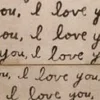 ou, I love yo
you, I love
you, I love y
, I love you,
I love you,